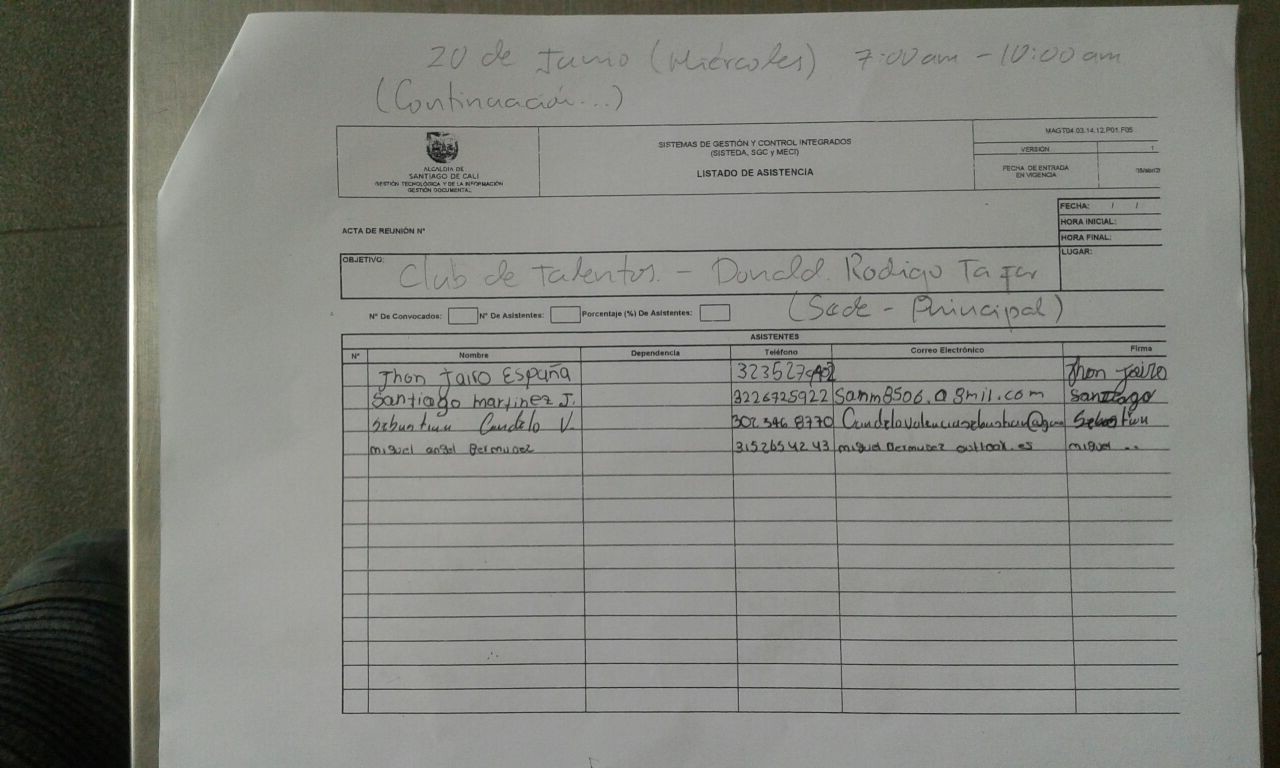 20 de Junio (Miércoles) 7:00 am - 10:00 am
(Continuación...)
ALCALDIA DE
SANTIAGO DE CALI
GESTIÓN TECNOLÓGICA Y DE LA INFORMACIÓN
GESTIÓN DOCUMENTAL
SISTEMAS DE GESTIÓN Y CONTROL INTEGRADOS
(SISTEDA, SGC y MECI)
LISTADO DE ASISTENCIA
MAGT04.03.14.12.P01.F05
VERSIÓN 1
FECHA DE ENTRADA
EN VIGENCIA
ACTA DE REUNIÓN N°
FECHA: / /
HORA INICIAL:
HORA FINAL:
LUGAR:
OBJETIVO: Club de Talentos. - Donald. Rodrigo Tafur
(Sede - Principal)
N° De Convocados: N° De Asistentes: Porcentaje (%) De Asistentes:
ASISTENTES
N° Nombre Dependencia Teléfono Correo Electrónico Firma
Jhon Jairo España Jhon Jairo
Santiago martinez J. 3226725922 Sanm8506.@gmil.com Santiago
Sebastian Candelo V. 302 346 8770 Sebastian
miguel angel Bermudez 3152654243 miguel Bermudez outlook.es miguel